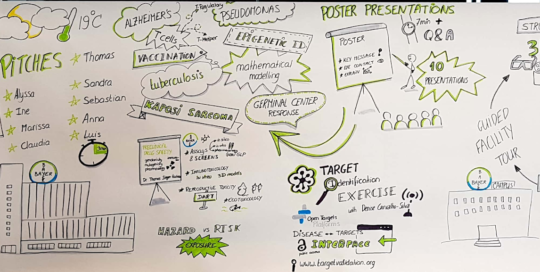 19°C
PITCHES
Alyssa
Ine
Marissa
Claudia
Thomas
Sandra
Sebastian
Anna
Luis
BAYER
ALZHEIMER'S
T cells
T-helper
PSEUDOMONAS
VACCINATION
EPIGENETIC ID
tuberculosis
mathematical
modelling
KAPOSI SARCOMA
GERMINAL CENTER
RESPONSE
POSTER PRESENTATIONS
7min +
Q&A
POSTER
KEY MESSAGE
EYE CONTACT
10
PRESENTATIONS
GUIDED
FACILITY
TOUR
BAYER
CAMPUS
ASSAYS
& SCREENS
IMMUNOTOXICOLOGY
REPRODUCTIVE TOXICITY
DART
ECOTOXICOLOGY
HAZARD vs RISK
EXPOSURE
TARGET
Identification
EXERCISE
with Denise Carvalho-Silva
Open Targets
Platform
DISEASE ↔ TARGETS
INTERFACE
www.targetvalidation.org